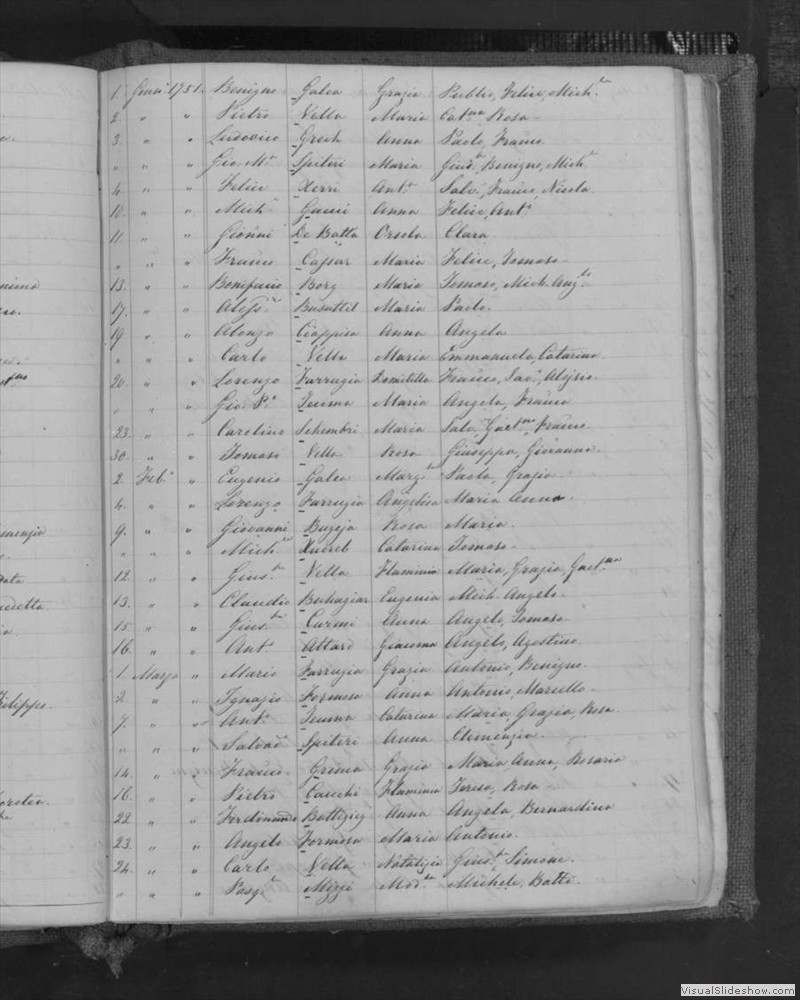 1. Genn: 1751. Benigno Galea Grazia Publio, Felice, Mich.l
2. " " Pietro Vella Maria Cat.na Rosa
3. " " Ludovico Grech Anna Paolo, Franco
" " " Gio M.a Spiteri Maria Gius.e, Benigno, Mich.l
4. " " Felice Xerri Ant.a Salv.e, Franco, Nicola
10. " " Mich.l Gauci Anna Felice, Ant.o
11. " " Gionni De Batta Orsola Clara
" " " Franco Cassar Maria Felice, Tomaso
13. " " Bonifacio Borg Maria Tomaso, Mich. Ang.lo
17. " " Aless.ro Busuttil Maria Paolo
19 " " Alonzo Ciappisa Anna Angela
" " " Carlo Vella Maria Emmanuela, Catarina
20. " " Lorenzo Farrugia Domitilla Franco, Sav.e, Aloisio
" " " Gio. P.o Teuma Maria Angela, Franco
23. " " Carolino Schembri Maria Salv. Gaet.no, Franco
30. " " Tomaso Vella Rosa Giuseppa, Giovanna
2. Feb.o " Eugenio Galea Marg.a Paola, Grazia
4. " " Lorenzo Farrugia Angelica Maria Anna
9. " " Giovanni Bugeja Rosa Maria
" " " Mich. Xuereb Catarina Tomaso
12. " " Gius.e Vella Flaminia Maria, Grazia, Gaet.na
13. " " Claudio Buhagiar Eugenia Mich. Angelo
15. " " Gius.e Curmi Anna Angelo, Tomaso
16. " " Ant.o Attard Giacoma Angelo, Agostino
1. Marzo " Mario Farrugia Grazia Antonio, Benigno
2. " " Ignazio Formosa Anna Antonio, Marcello
7. " " Ant.o Teuma Catarina Maria, Grazia, Rosa
" " " Salvad.e Spiteri Anna Clemenzia
14. " " Franco Grima Grazia Maria Anna, Rosaria
16. " " Pietro Cauchi Flaminia Teresa, Rosa
22. " " Ferdinando Battigieg Anna Angela, Bernardina
23. " " Angelo Formosa Maria Antonio
24. " " Carlo Vella Natalizia Gius.e, Simone
" " " Pasq.e Mizzi Mod.ta Michele, Batta
VisualSlideshow.com